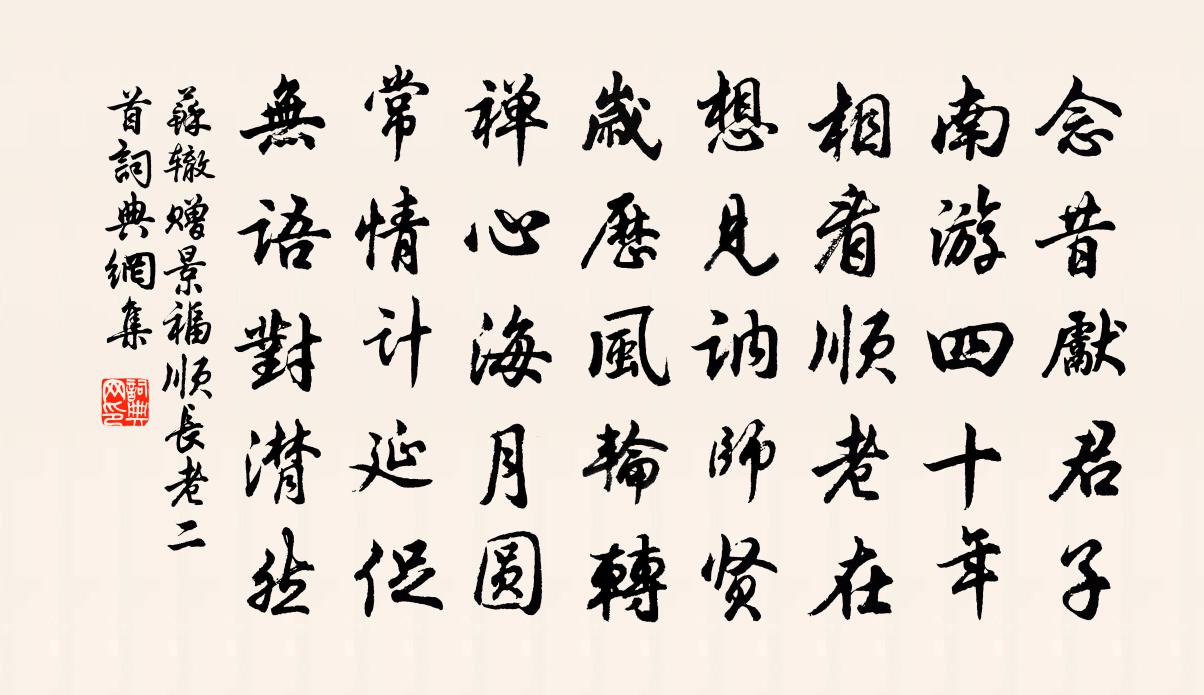 念昔獻君子
南游四十年
相看順老在
想見訥師賢
歲歷風輪轉
禅心海月圓
常情计延促
無語對潸然
蘇辙赠景福順長老二
首詞典網集
詞典
网印